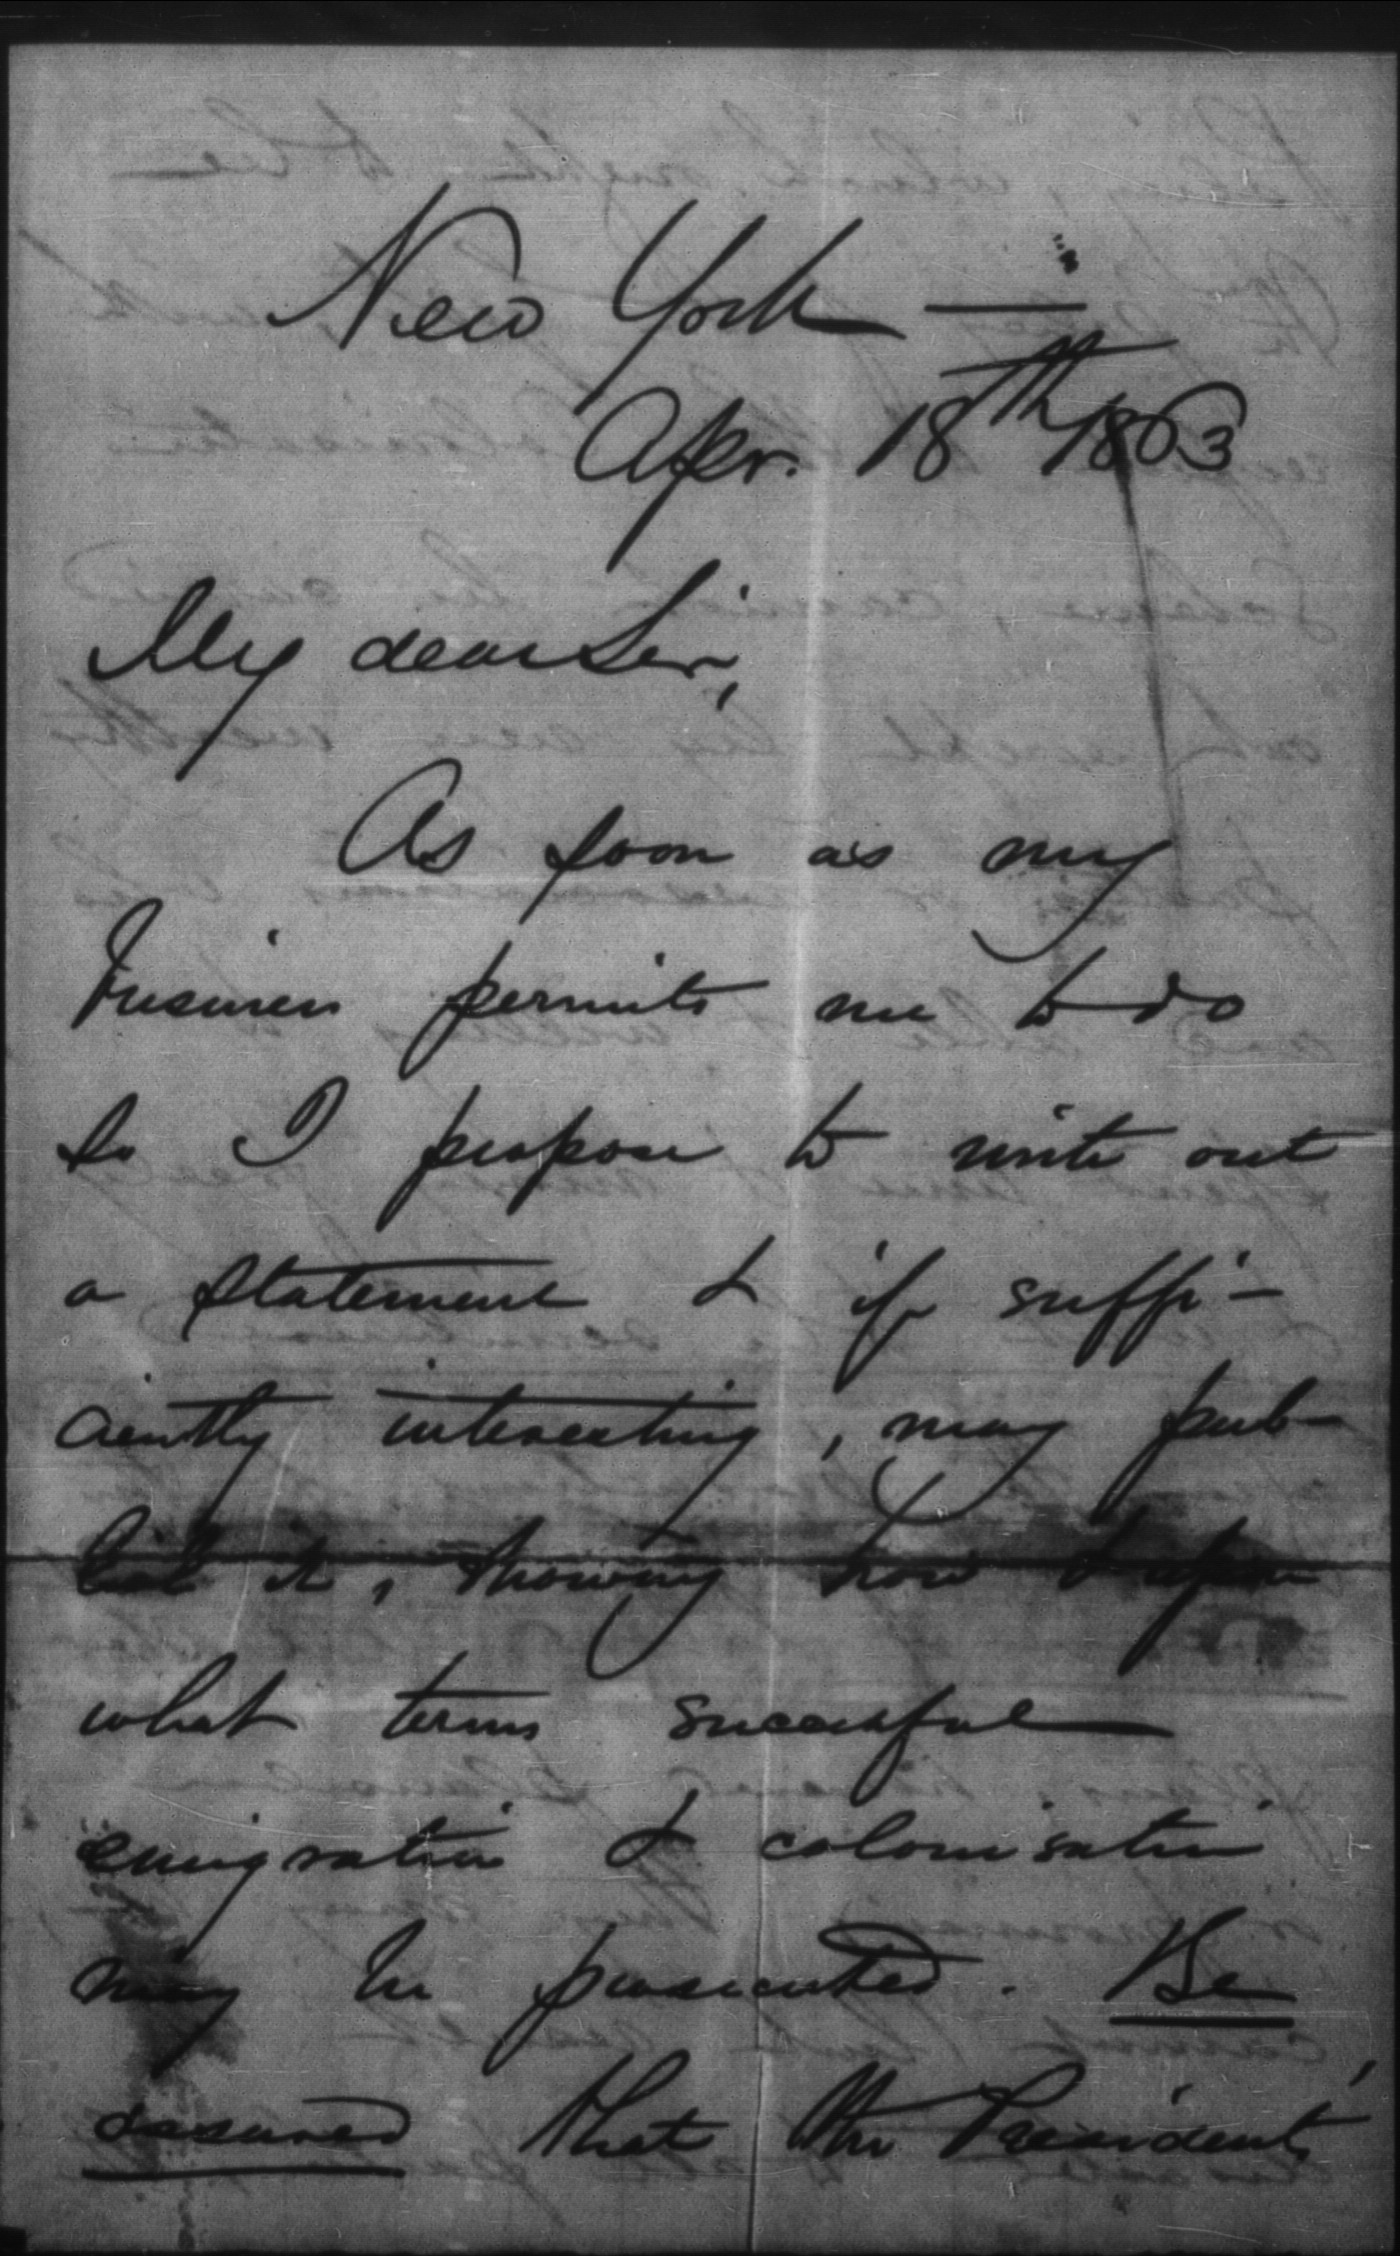 New York —
Apr. 18th 1863
My dear Sir,
As soon as my
business permits me to do
so I propose to write out
a statement & if suffi-
ciently interesting, may pub-
lish it, showing how & upon
what terms successful
emigration & colonisation
may be prosecuted. Be
assured that the President's